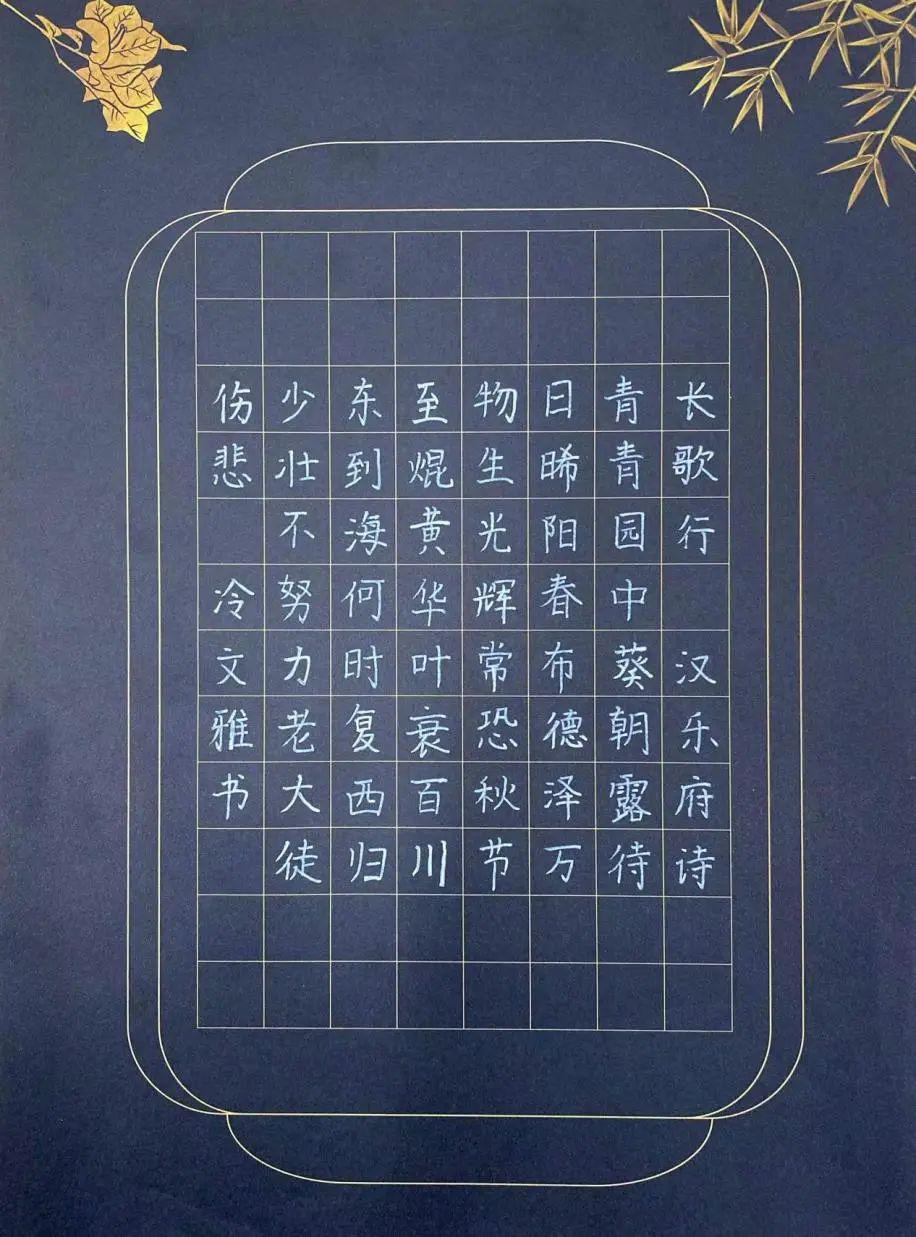 长歌行 汉乐府诗
青青园中葵朝露待
日晞阳春布德泽万
物生光辉常恐秋节
至焜黄华叶衰百川
东到海何时复西归
少壮不努力老大徒
伤悲 冷文雅书